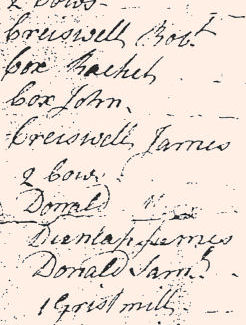 2 Cows
Creiswell Robt
Cox Rachel
Cox John
Creiswell James
2 Cows
Donald
Dunlap James
Donald Saml
1 Grist mill